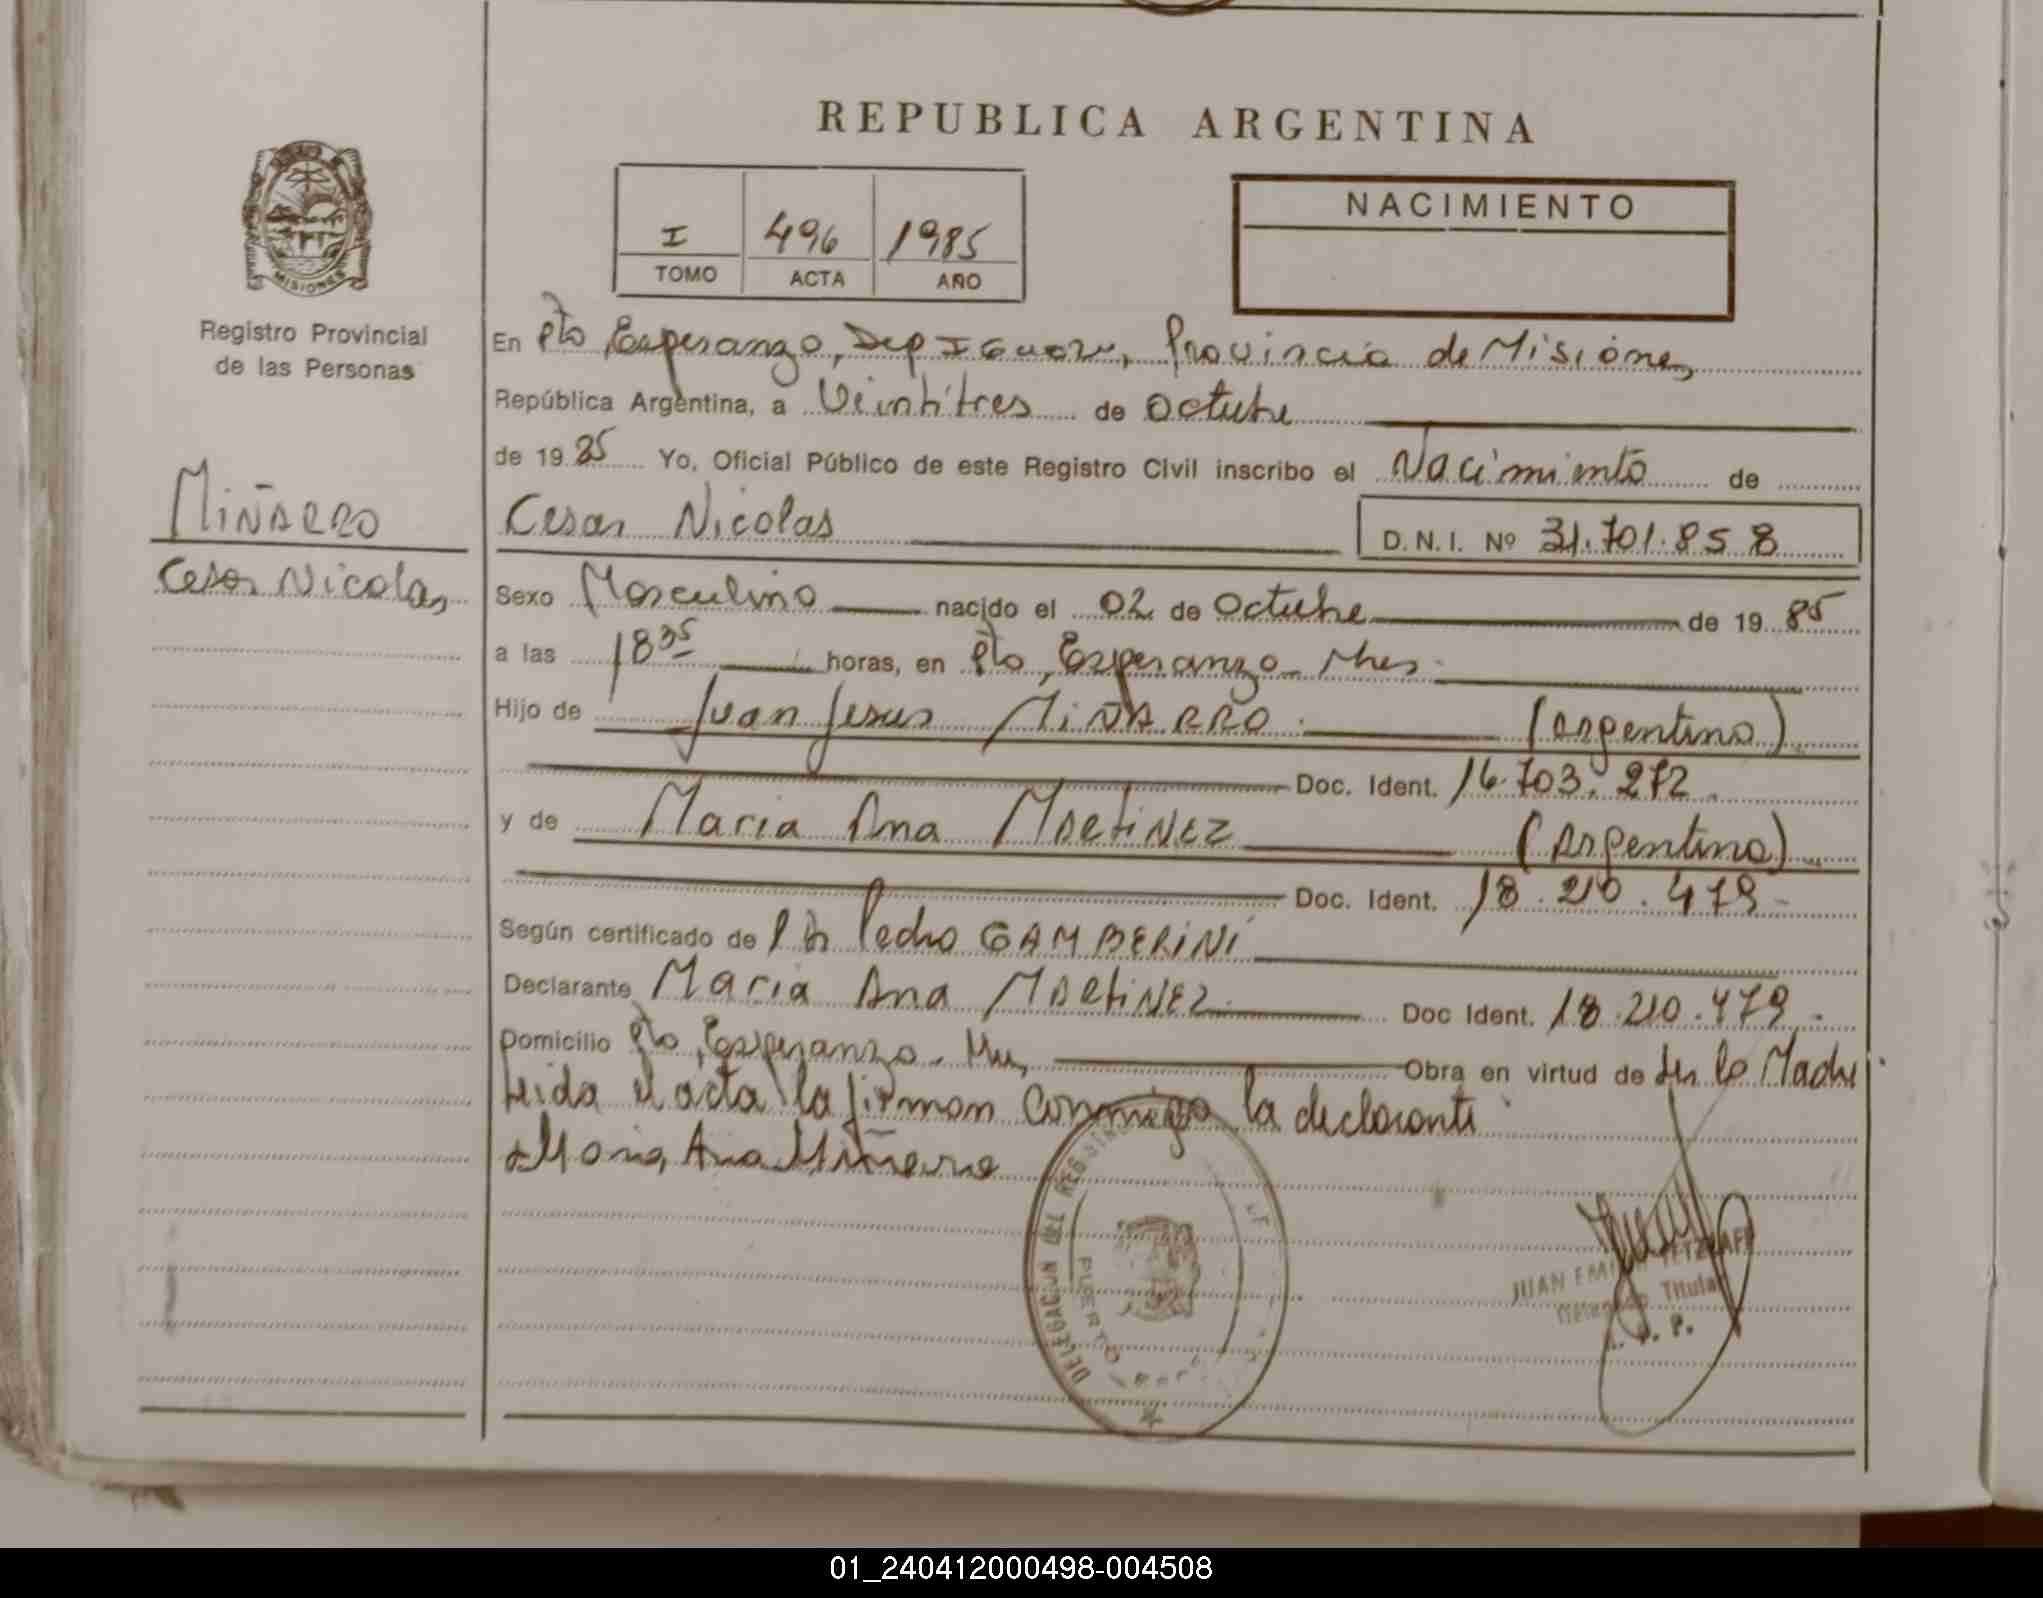 REPUBLICA ARGENTINA
I 496 1985
TOMO ACTA AÑO
NACIMIENTO
MISIONES
Registro Provincial
de las Personas
MIÑARRO
Cesar Nicolas
En Pto Esperanza, Dep IGuazu, Provincia de Misiones
República Argentina, a Veintitres de Octubre
de 1985 Yo, Oficial Público de este Registro Civil inscribo el Nacimiento de
Cesar Nicolas D.N.I. Nº 31.701.858
Sexo Masculino nacido el 02 de Octubre de 1985
a las 18 35 horas, en Pto Esperanza - Mnes.
Hijo de Juan Jesus MIÑARRO. (Argentino)
Doc. Ident. 16.703.272.
y de Maria Ana MARtiNEZ (Argentina)
Doc. Ident. 18.210.479-
Según certificado de Pedro GAMBERiNi
Declarante Maria Ana MARtiNEZ. Doc Ident. 18.210.479.
Domicilio Pto Esperanza - Obra en virtud de Ser la Madre
leida el acta la firman conmigo la declarante
Maria Ana Miñarro
DELEGACION DEL REGISTRO
PUERTO
JUAN TETZLAFF
Delegado Titular
01_240412000498-004508